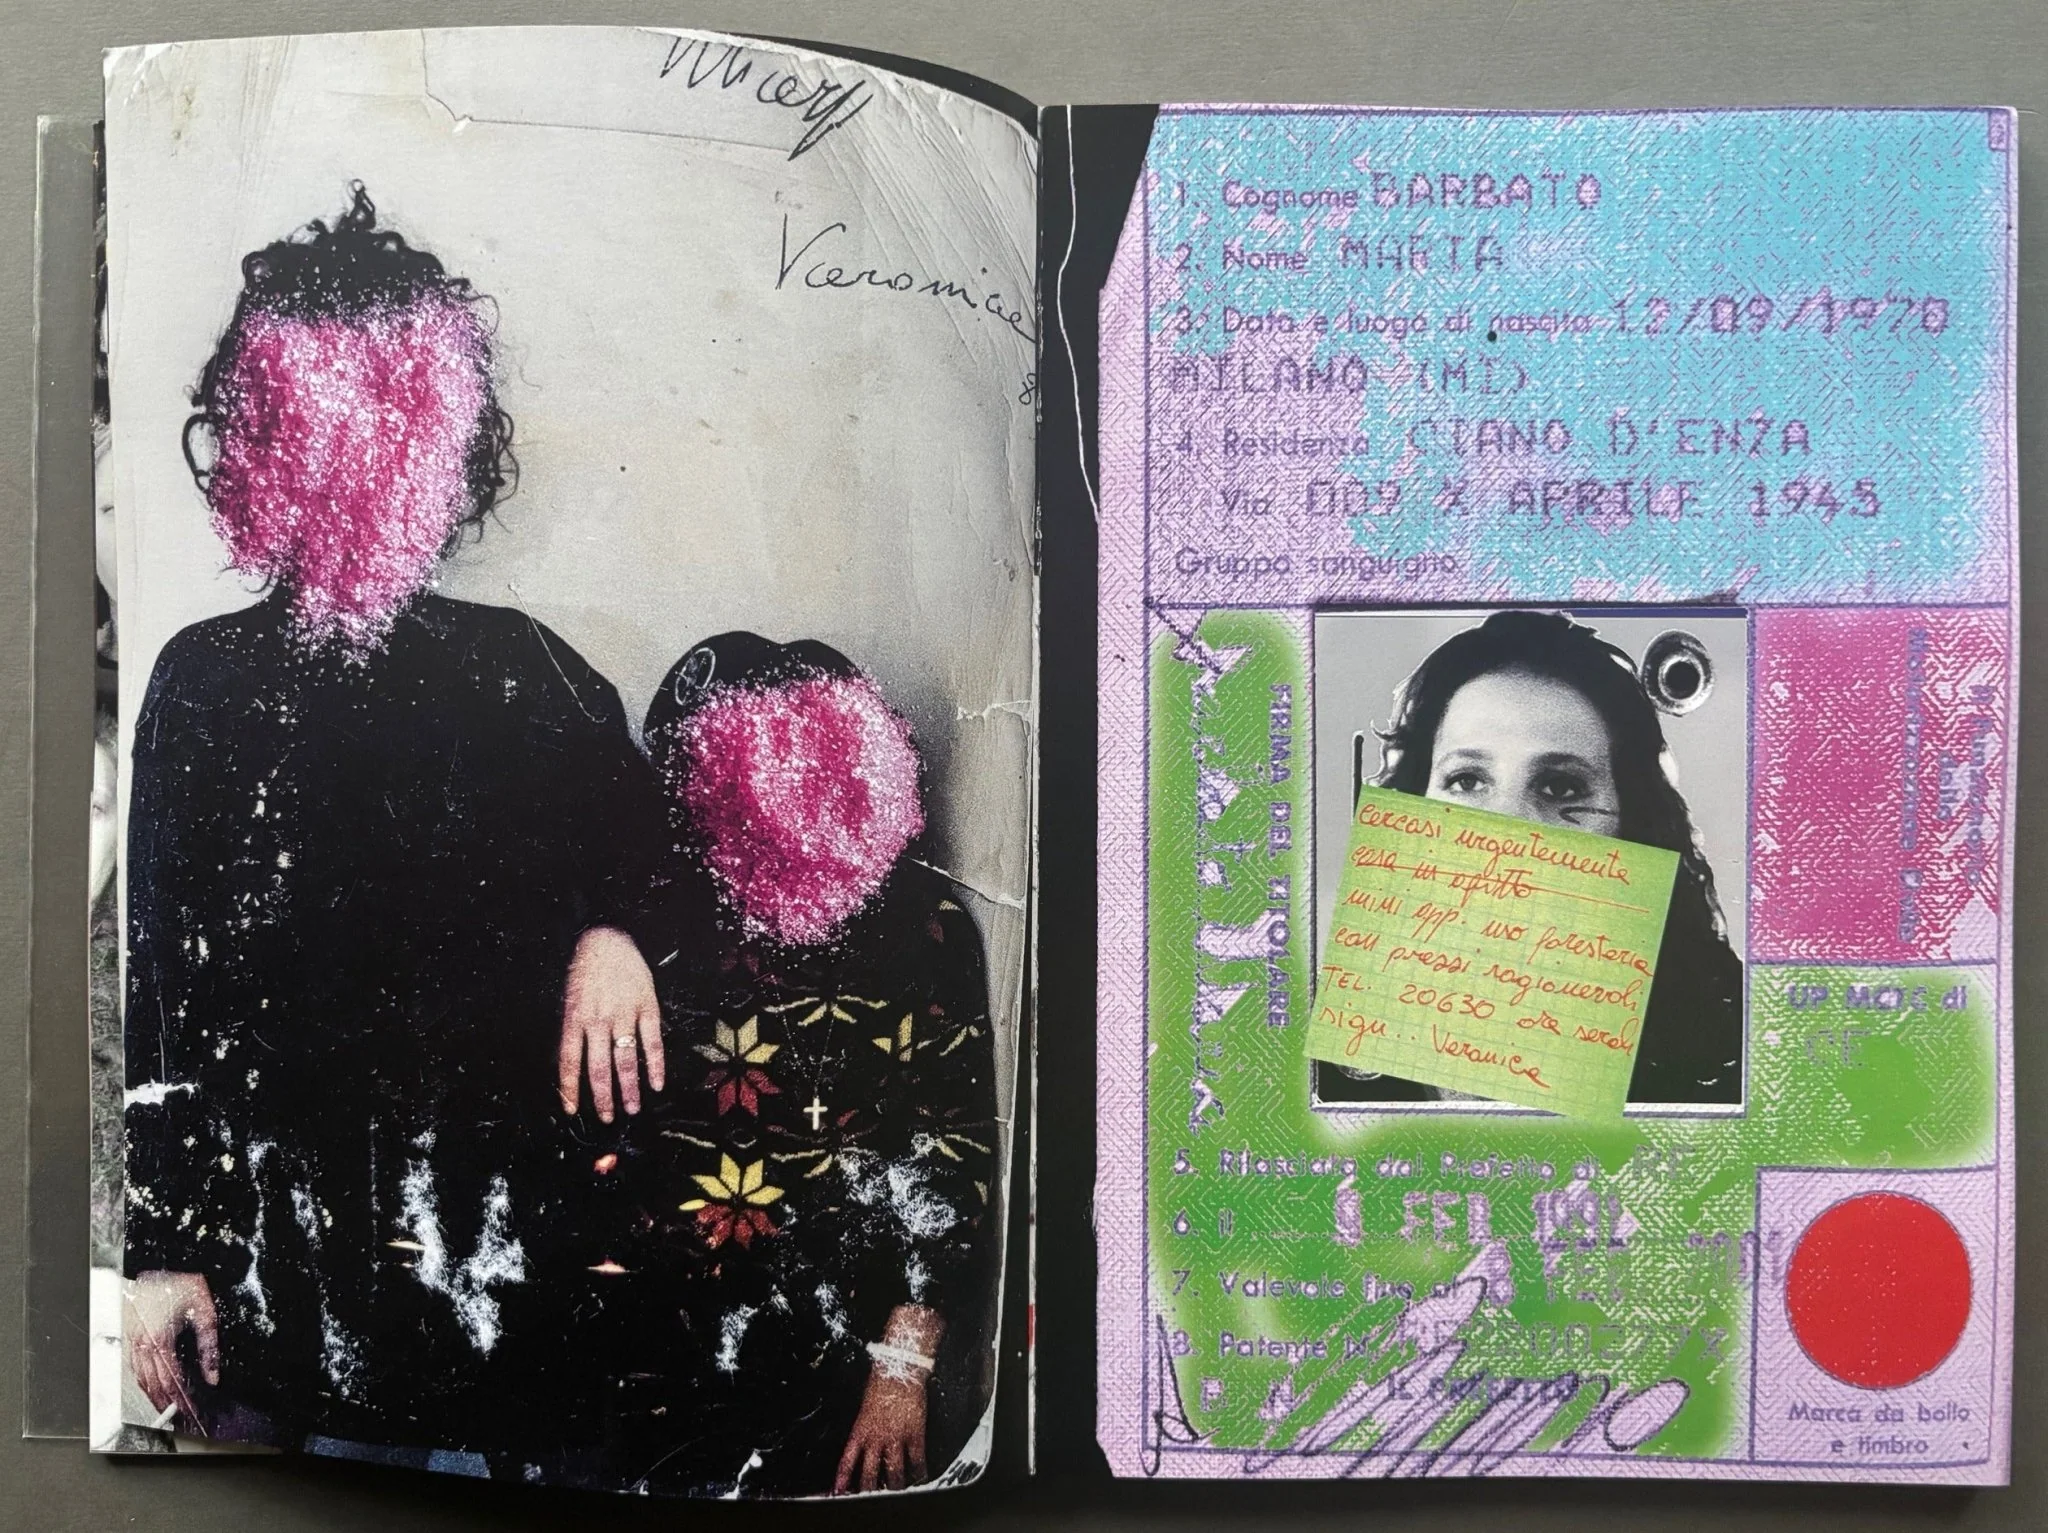 Veronica
1. Cognome BARBATO
2. Nome MARIA
3. Data e luogo di nascita 12/09/1970
MILANO (MI)
4. Residenza CIANO D'ENZA
Via APRILE 1945
Gruppo sanguigno
FIRMA DEL TITOLARE
cercasi urgentemente
casa in affitto
mini app. uso foresteria
con prezzi ragionevoli
TEL. 20630 ore serali
sign.. Veronica
UP MCTC di
5. Rilasciata dal Prefetto di RE
6. il 8 FEB
7. Valevole fino al
8. Patente N.
IL PREFETTO
Marca da bollo
e timbro